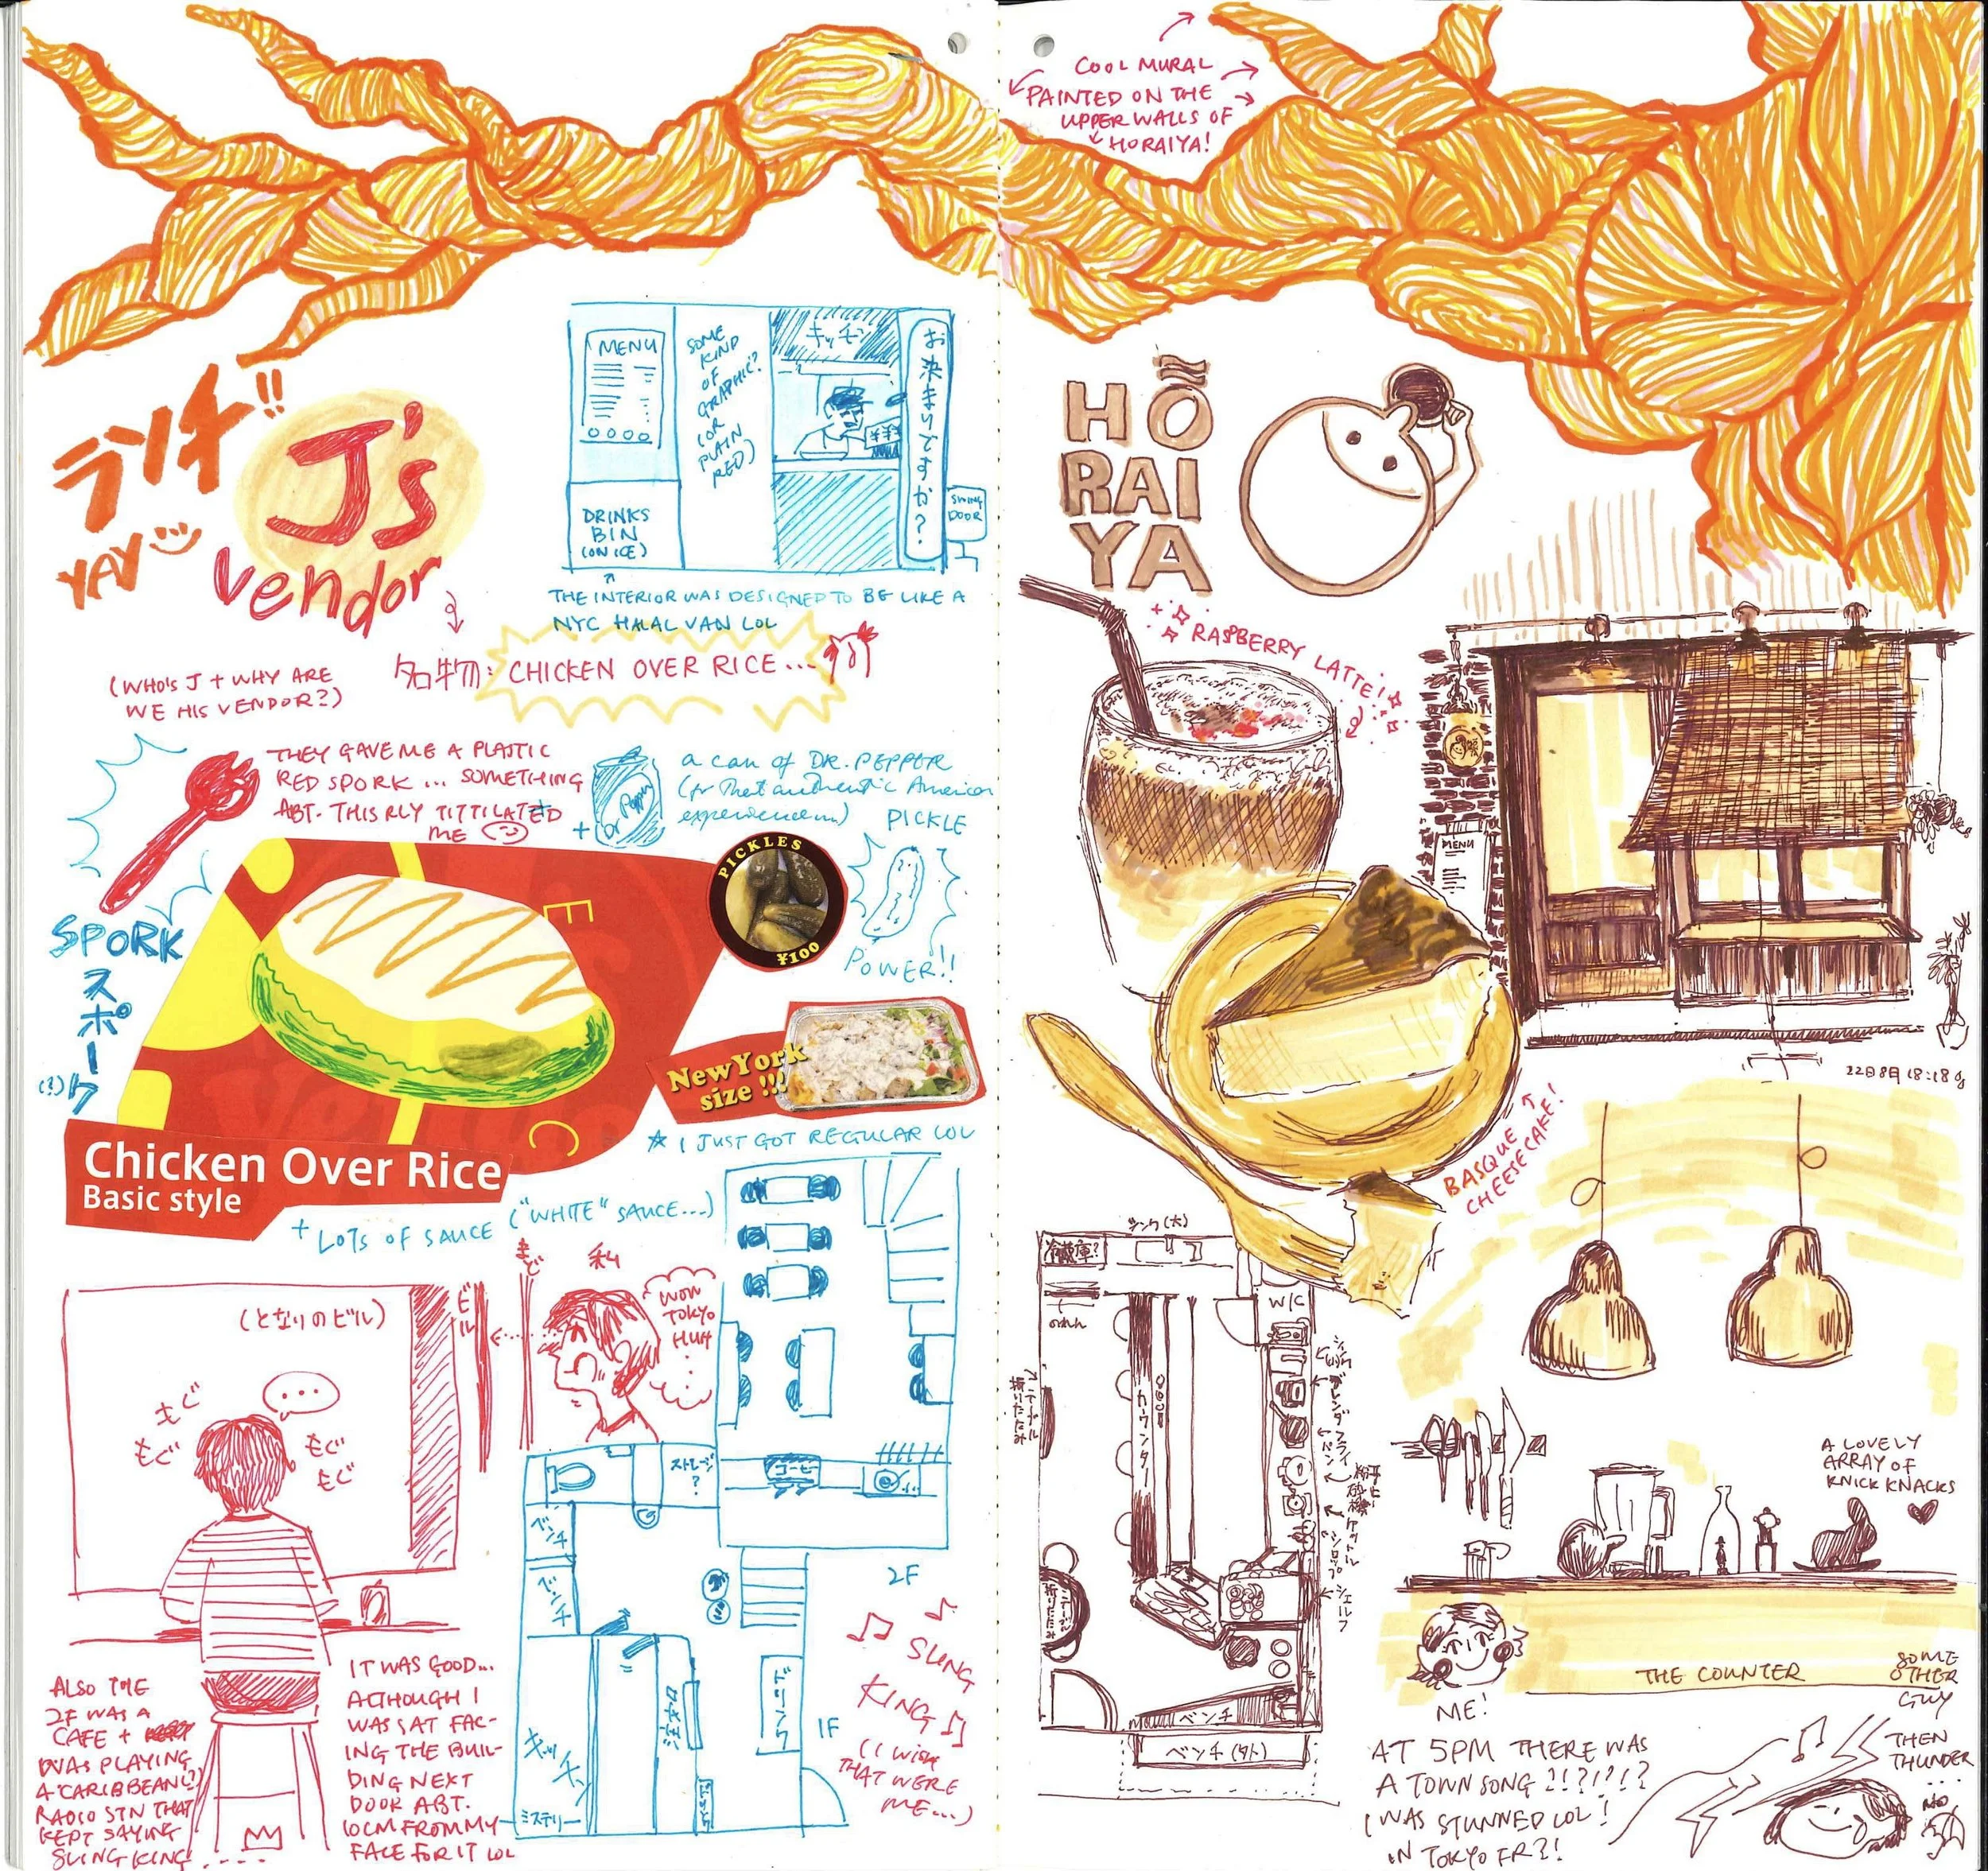 COOL MURAL
PAINTED ON THE
UPPER WALLS OF
HORAIYA!
ランチ!!
YAY
J's
vendor
MENU
SOME
KIND
OF
GRAPHIC?
(OR
PLAIN
RED)
キッチン
お決まりですか?
SWING
DOOR
DRINKS
BIN
(ON ICE)
THE INTERIOR WAS DESIGNED TO BE LIKE A
NYC HALAL VAN LOL
名物: CHICKEN OVER RICE...
(WHO'S J + WHY ARE
WE HIS VENDOR?)
THEY GAVE ME A PLASTIC
RED SPORK ... SOMETHING
ABT. THIS RLY TITTILATED
ME
+
Dr Pepper
a can of DR. PEPPER
(for that authentic American
experience...)
PICKLE
POWER!!
PICKLES
¥100
SPORK
スポーク
(?)
E
C
New York
size !!!
☆ I JUST GOT REGULAR LOL
Chicken Over Rice
Basic style
+ LOTS OF SAUCE ("WHITE" SAUCE...)
(となりのビル)
ビル
まど
私
WOW
TOKYO
HUH
...
...
もぐ
もぐ
もぐ
もぐ
ストレージ
?
コーヒー
2F
ベンチ
ベンチ
キッチン
ミステリー
注文口
ドリンク
1F
ALSO THE
2F WAS A
CAFE +
WAS PLAYING
A CARIBBEAN(?)
RADIO STN THAT
KEPT SAYING
SLING KING....
IT WAS GOOD...
ALTHOUGH I
WAS SAT FAC-
ING THE BUIL-
DING NEXT
DOOR ABT.
10CM FROM MY
FACE FOR IT LOL
SLING
KING
(I WISH
THAT WERE
ME...)
HŌ
RAI
YA
RASPBERRY LATTE!
MENU
22日8月 18:18
BASQUE
CHEESECAKE!
シンク(大)
冷蔵庫?
のれん
W/C
カウンター
テーブル
折りたたみ
シンク(小)
ブレンダ
フライパン
ケットル
シロップ
シェルフ
ベンチ
ベンチ(外)
A LOVELY
ARRAY OF
KNICK KNACKS
THE COUNTER
ME!
SOME
OTHER
GUY
AT 5PM THERE WAS
A TOWN SONG ?!?!?!?
I WAS STUNNED LOL!
IN TOKYO FR?!
THEN
THUNDER
...
NO